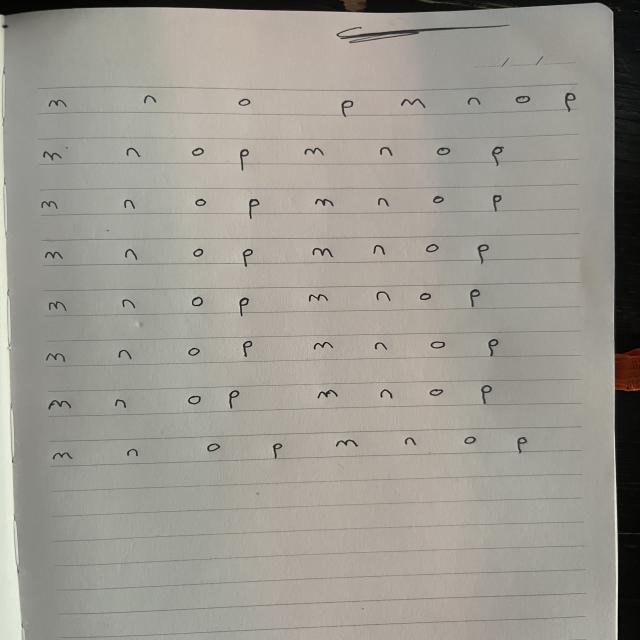 m n o p m n o p
m n o p m n o p
m n o p m n o p
m n o p m n o p
m n o p m n o p
m n o p m n o p
m n o p m n o p
m n o p m n o p